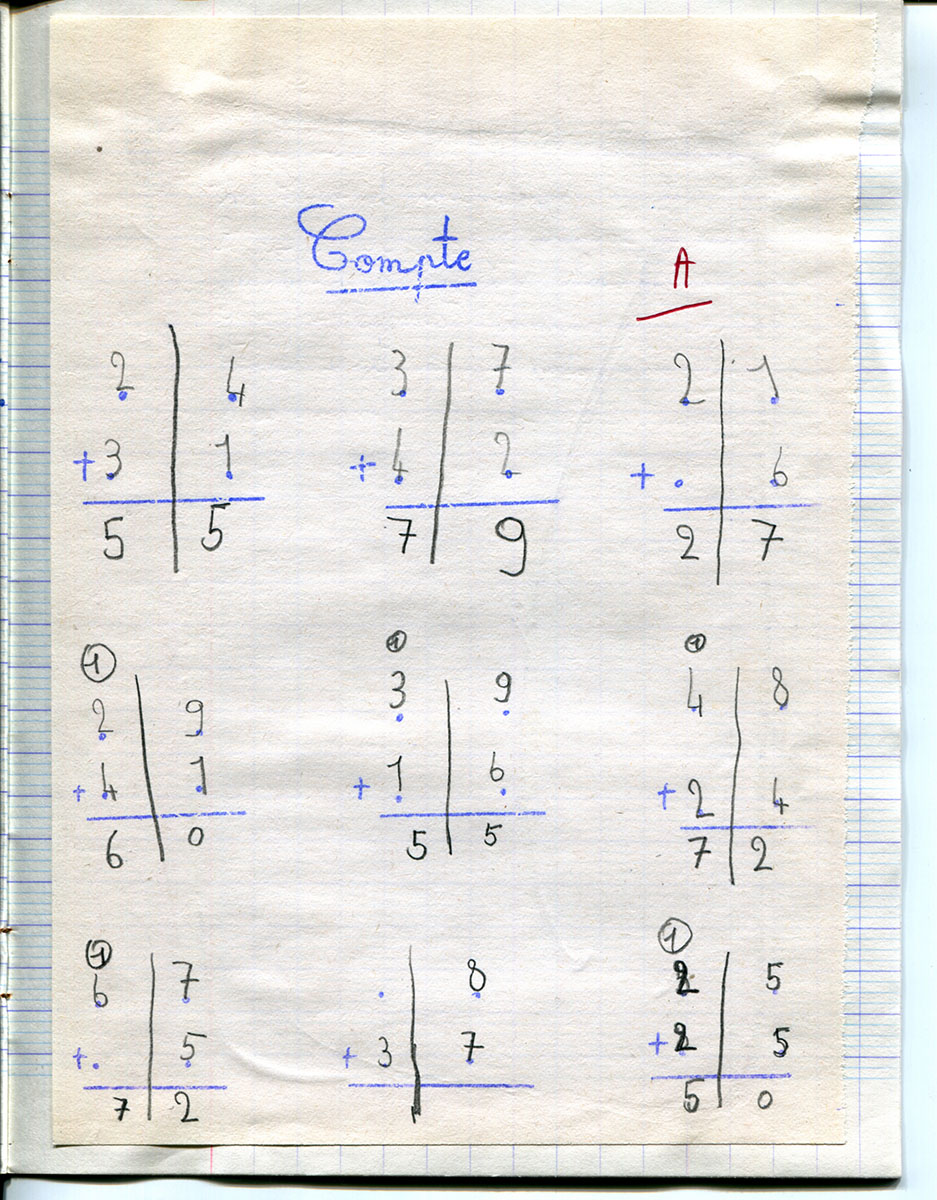 Compte
A
2 4 3 7 2 1
+3 1 + 4 2 + . 6
5 5 7 9 2 7
1 1 1
2 9 3 9 4 8
+4 1 + 1 6 + 2 4
6 0 5 5 7 2
1 1
6 7 . 8 2 5
+. 5 + 3 7 + 2 5
7 2 5 0